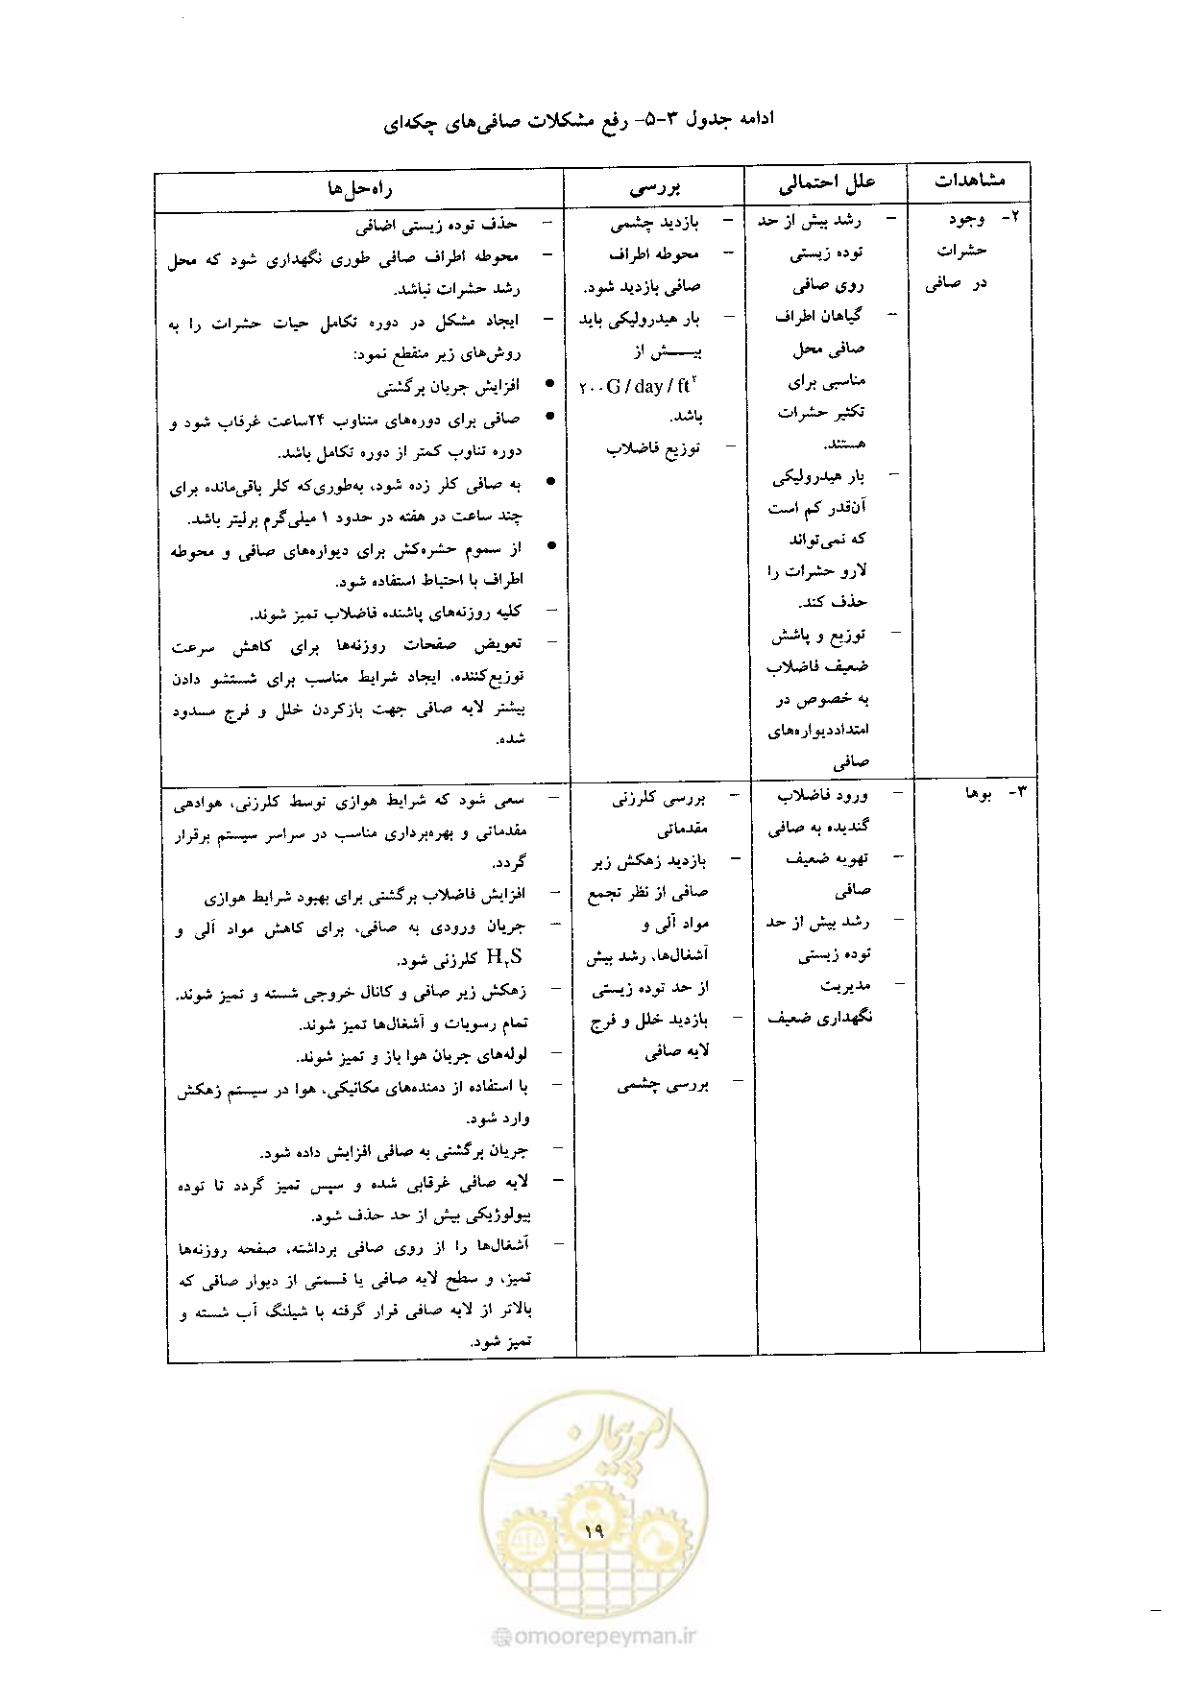 ادامه جدول ۳-۵- رفع مشکلات صافی‌های چکه‌ای
مشاهدات
علل احتمالی
بررسی
راه‌حل‌ها
۲- وجود
حشرات
در صافی
– رشد بیش از حد
توده زیستی
روی صافی
– گیاهان اطراف
صافی محل
مناسبی برای
تکثیر حشرات
هستند.
– بار هیدرولیکی
آن‌قدر کم است
که نمی‌تواند
لارو حشرات را
حذف کند.
– توزیع و پاشش
ضعیف فاضلاب
به خصوص در
امتداددیواره‌های
صافی
– بازدید چشمی
– محوطه اطراف
صافی بازدید شود.
– بار هیدرولیکی باید
بیـــش از
۲۰۰G / day / ft۲
باشد.
– توزیع فاضلاب
– حذف توده زیستی اضافی
– محوطه اطراف صافی طوری نگهداری شود که محل
رشد حشرات نباشد.
– ایجاد مشکل در دوره تکامل حیات حشرات را به
روش‌های زیر منقطع نمود:
● افزایش جریان برگشتی
● صافی برای دوره‌های متناوب ۲۴ساعت غرقاب شود و
دوره تناوب کمتر از دوره تکامل باشد.
● به صافی کلر زده شود، به‌طوری‌که کلر باقی‌مانده برای
چند ساعت در هفته در حدود ۱ میلی‌گرم برلیتر باشد.
● از سموم حشره‌کش برای دیواره‌های صافی و محوطه
اطراف با احتیاط استفاده شود.
– کلیه روزنه‌های پاشنده فاضلاب تمیز شوند.
– تعویض صفحات روزنه‌ها برای کاهش سرعت
توزیع‌کننده. ایجاد شرایط مناسب برای شستشو دادن
بیشتر لایه صافی جهت بازکردن خلل و فرج مسدود
شده.
۳- بوها
– ورود فاضلاب
گندیده به صافی
– تهویه ضعیف
صافی
– رشد بیش از حد
توده زیستی
– مدیریت
نگهداری ضعیف
– بررسی کلرزنی
مقدماتی
– بازدید زهکش زیر
صافی از نظر تجمع
مواد آلی و
آشغال‌ها، رشد بیش
از حد توده زیستی
– بازدید خلل و فرج
لایه صافی
– بررسی چشمی
– سعی شود که شرایط هوازی توسط کلرزنی، هوادهی
مقدماتی و بهره‌برداری مناسب در سراسر سیستم برقرار
گردد.
– افزایش فاضلاب برگشتی برای بهبود شرایط هوازی
– جریان ورودی به صافی، برای کاهش مواد آلی و
H۲S کلرزنی شود.
– زهکش زیر صافی و کانال خروجی شسته و تمیز شوند.
تمام رسوبات و آشغال‌ها تمیز شوند.
– لوله‌های جریان هوا باز و تمیز شوند.
– با استفاده از دمنده‌های مکانیکی، هوا در سیستم زهکش
وارد شود.
– جریان برگشتی به صافی افزایش داده شود.
– لایه صافی غرقابی شده و سپس تمیز گردد تا توده
بیولوژیکی بیش از حد حذف شود.
– آشغال‌ها را از روی صافی برداشته، صفحه روزنه‌ها
تمیز، و سطح لایه صافی یا قسمتی از دیوار صافی که
بالاتر از لایه صافی قرار گرفته با شیلنگ آب شسته و
تمیز شود.
امور پیمان
۱۹
@omoorepeyman.ir